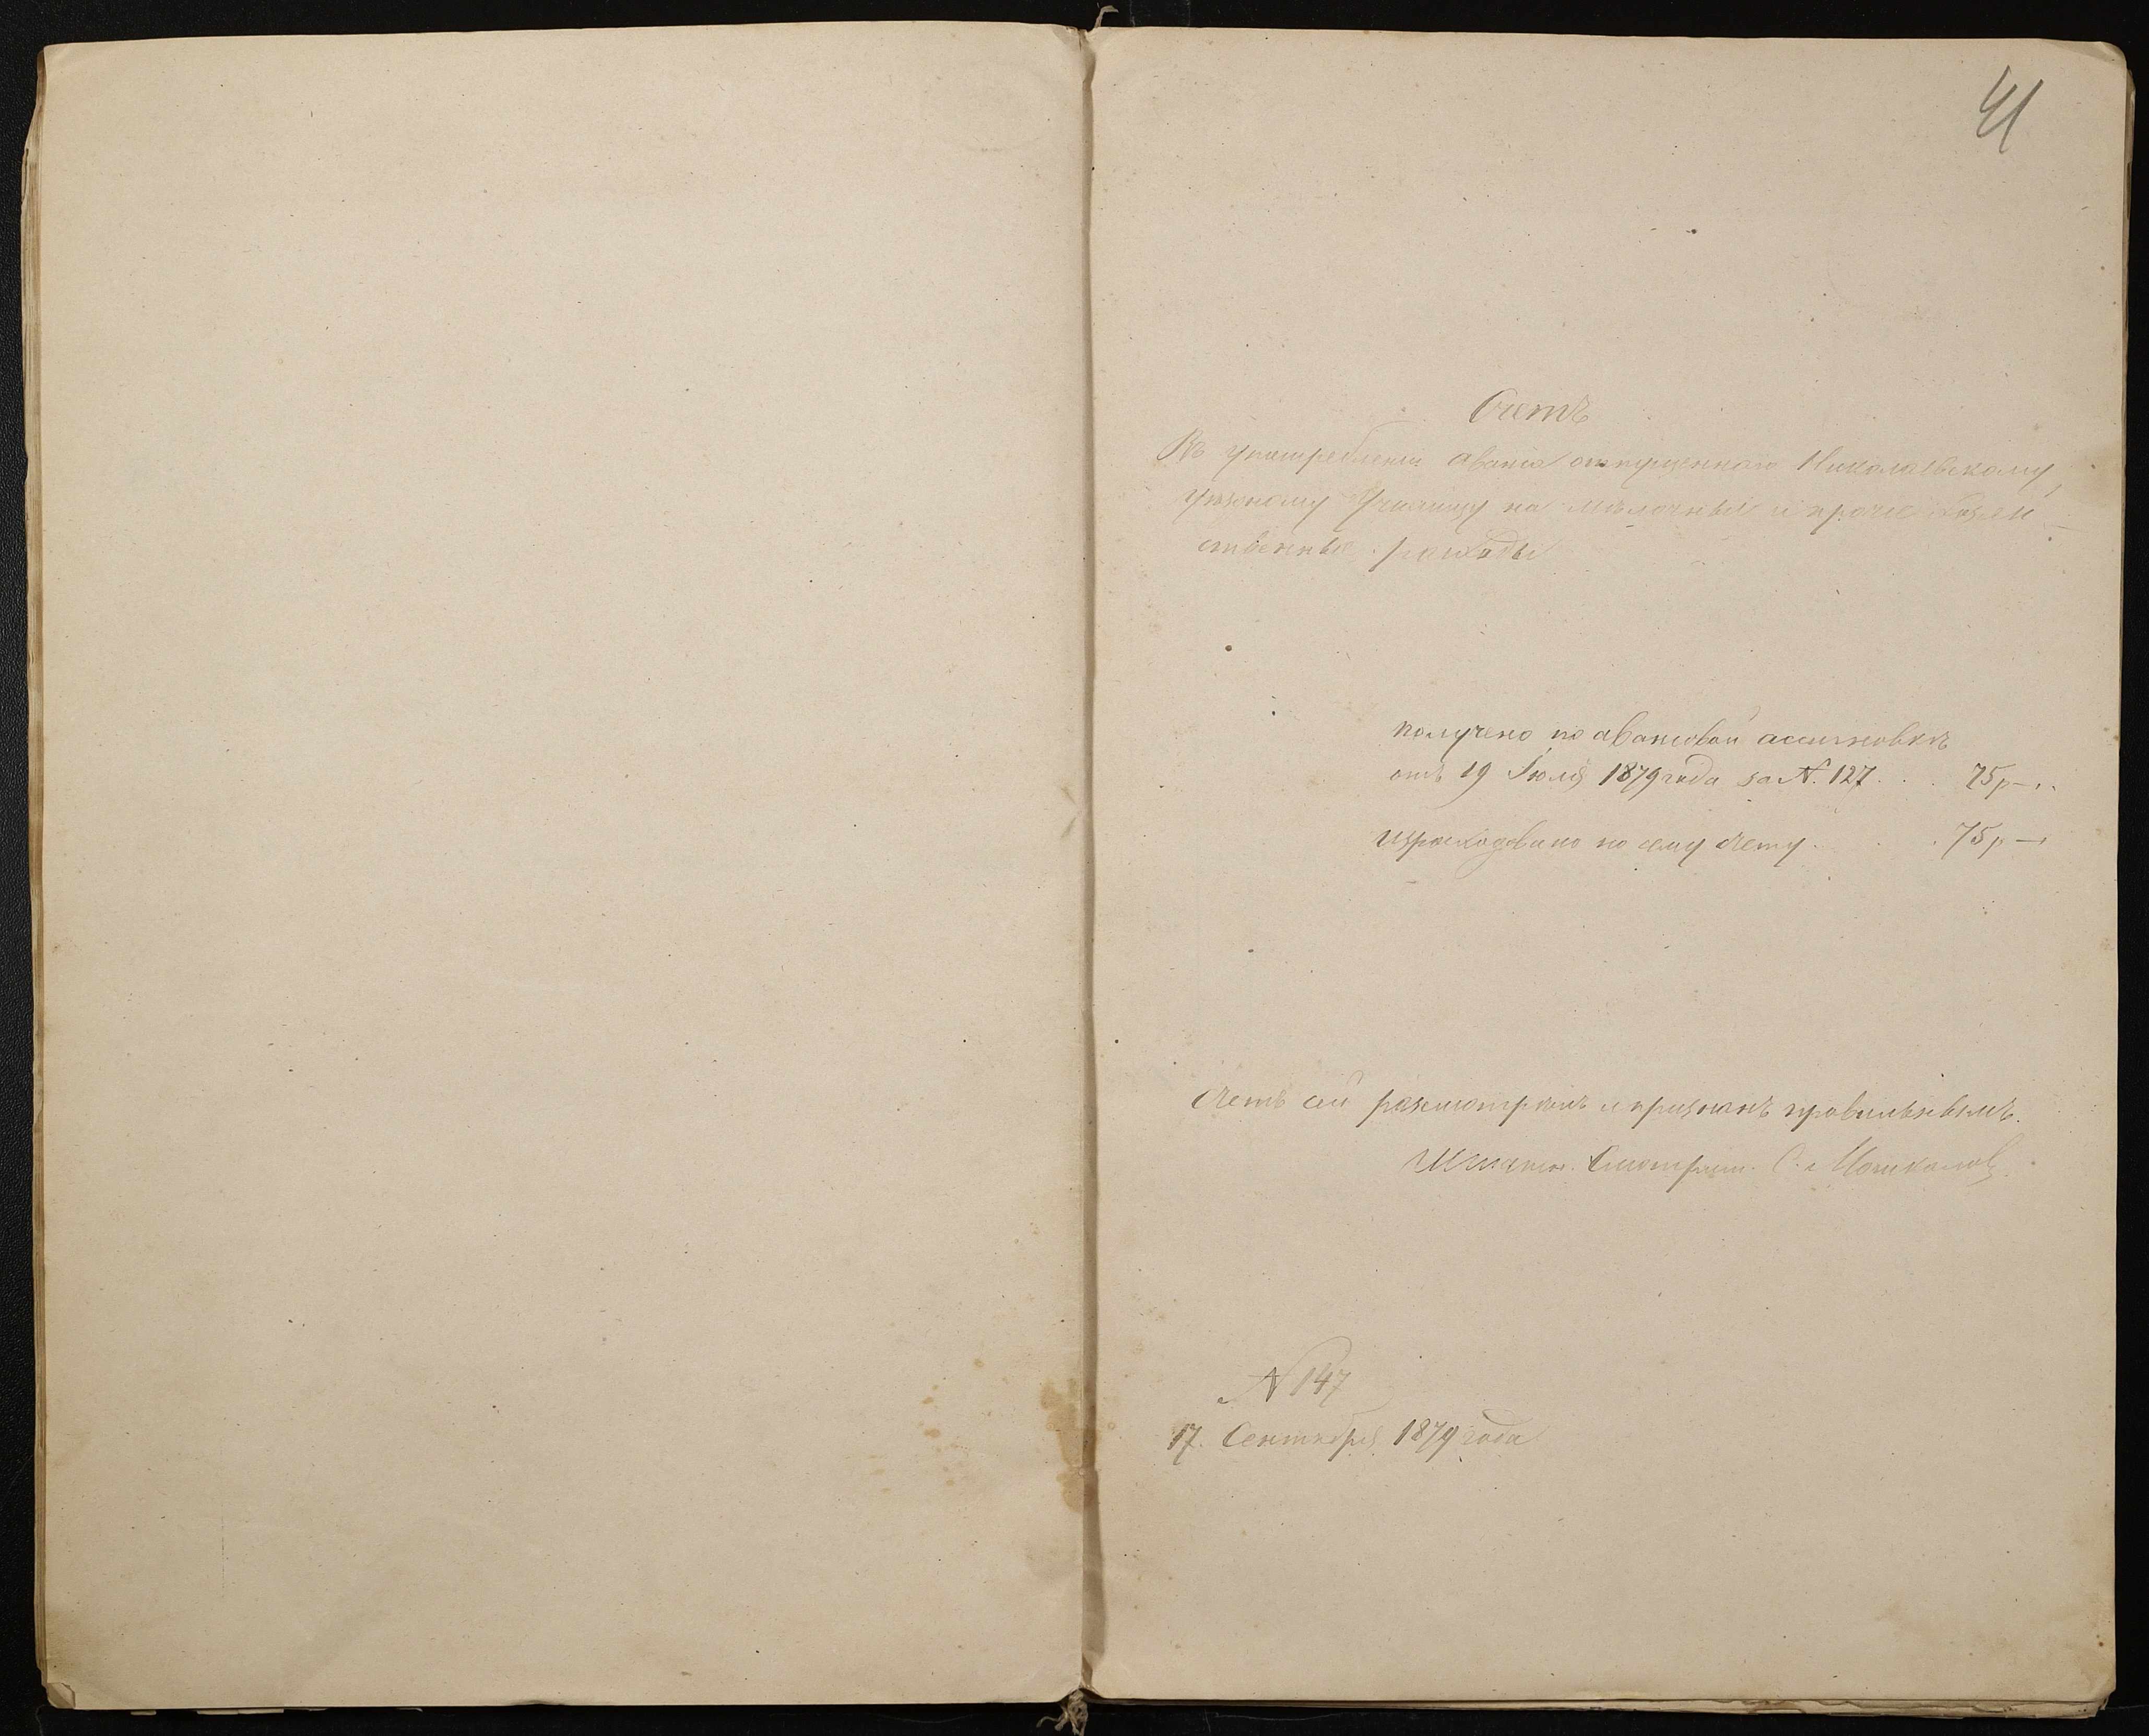 41
Счетъ
Въ употребленіи аванса отпущеннаго Николаевскому
Уѣздному Училищу на мѣлочныя и прочіе хозяй
ственныя расходы
получено по авансовой ассигновкѣ
отъ 19 Іюля 1879 года за №. 127 . . . 75 р —
израсходовано по сему счету . . . 75 р —
Счетъ сей разсмотрѣнъ и признанъ правильнымъ.
Штатн. Смотрит.
№ 147
17. Сентября 1879 года